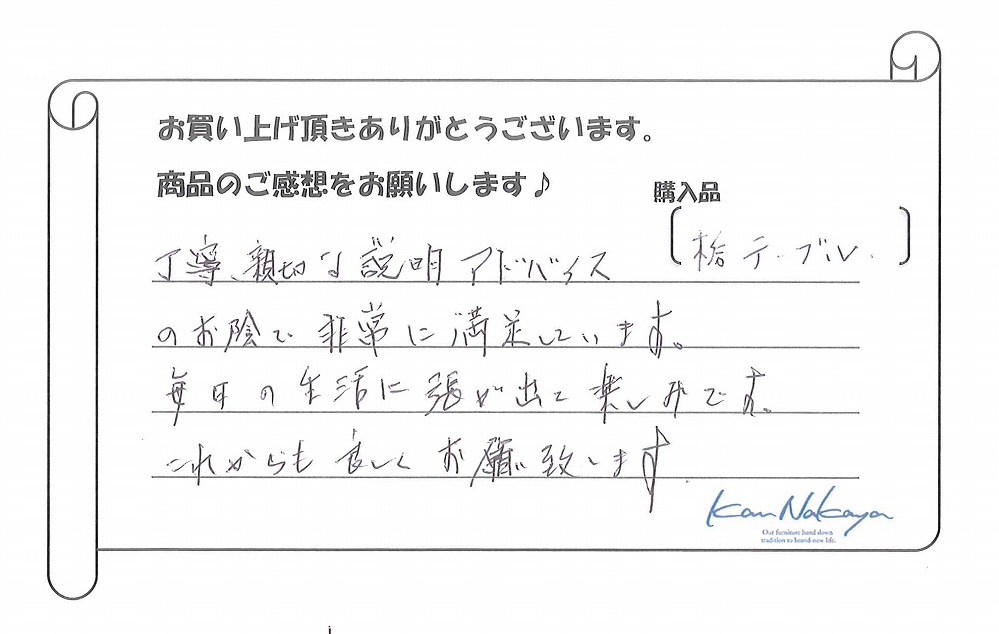 お買い上げ頂きありがとうございます。
商品のご感想をお願いします♪
購入品
栃テーブル.
丁寧、親切な説明アドバイス
のお陰で非常に満足しています。
毎日の生活に張が出て楽しみです。
これからも良しくお願い致します
Kan Nakaya
Our furniture hand down
tradition to brand-new life.